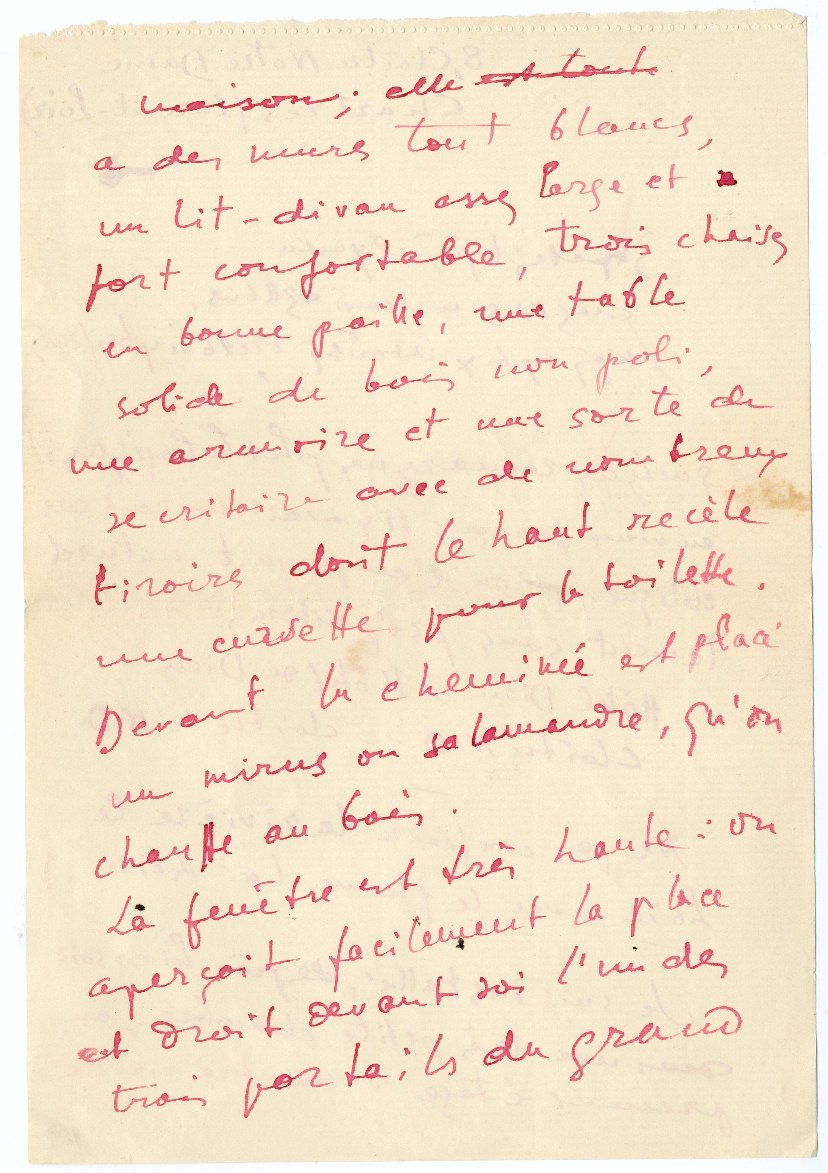 maison; elle est toute
a des murs tout blancs,
un lit-divan assez large et
fort confortable, trois chaises
en bonne paille, une table
solide de bois non poli,
une armoire et une sorte de
secritaire avec de nombreux
tiroirs dont le haut recèle
une cuvette pour la toilette.
Devant la cheminée est placé
un mirus ou salamandre, qu'on
chauffe au bois.
La fenêtre est très haute: on
aperçoit facilement la place
et droit devant soi l'un des
trois portails du grand